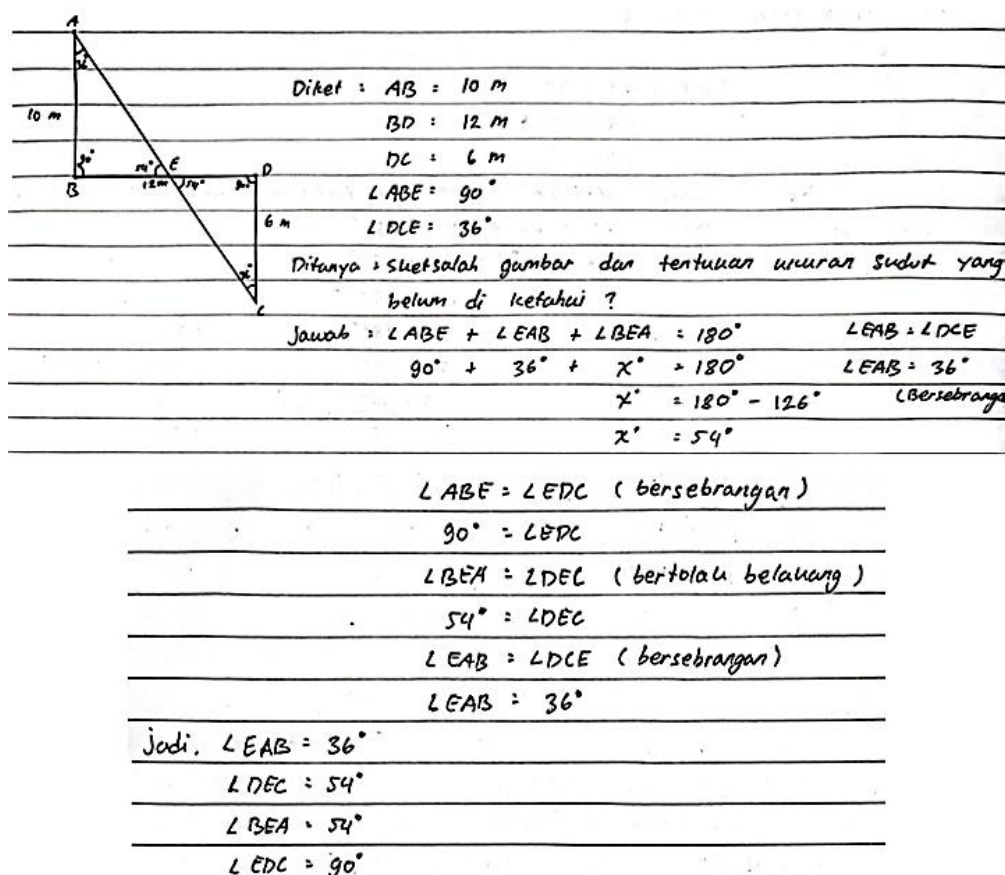 A
x°
10 m
90°
B
54°
E
12m
54°
90°
D
6 m
x°
C
Diket : AB = 10 m
BD : 12 m
DC = 6 m
∠ABE = 90°
∠DCE = 36°
Ditanya : sketsalah gambar dan tentukan ukuran sudut yang
belum di ketahui ?
Jawab : ∠ABE + ∠EAB + ∠BEA = 180° ∠EAB = ∠DCE
90° + 36° + x° = 180° ∠EAB = 36°
x° = 180° - 126° (Bersebranga
x° = 54°
∠ABE = ∠EDC (bersebrangan)
90° = ∠EDC
∠BEA = ∠DEC (bertolak belakang)
54° = ∠DEC
∠EAB = ∠DCE (bersebrangan)
∠EAB = 36°
Jadi. ∠EAB = 36°
∠DEC = 54°
∠BEA = 54°
∠EDC = 90°